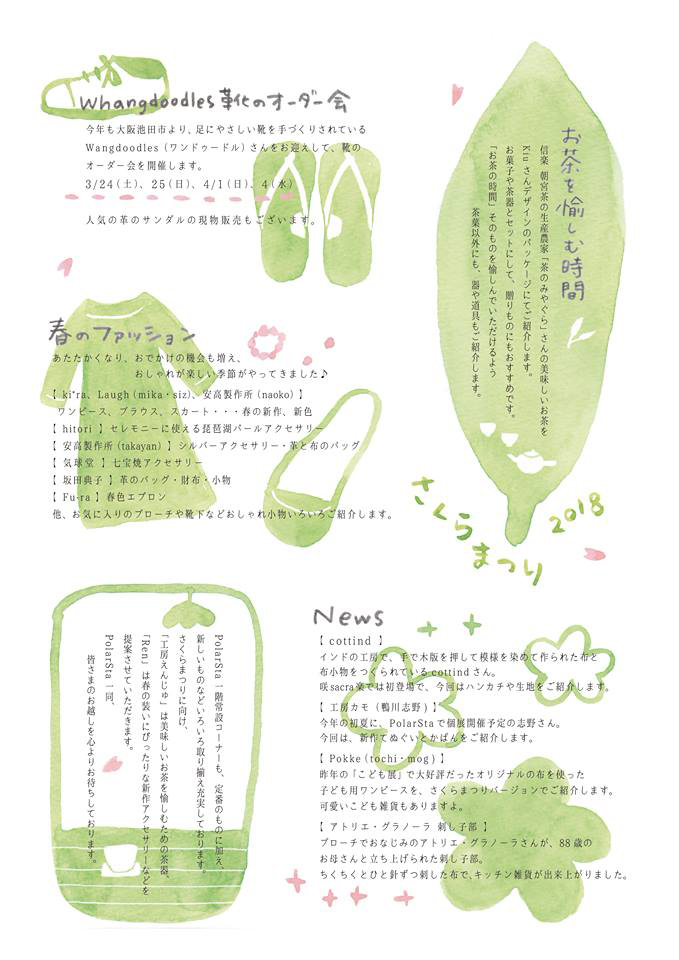 Whangdoodles 革靴のオーダー会
今年も大阪池田市より、足にやさしい靴を手づくりされている
Wangdoodles（ワンドゥードル）さんをお迎えして、靴の
オーダー会を開催します。
3/24（土）、25（日）、4/1（日）、4（水）
人気の革のサンダルの現物販売もございます。
お茶を愉しむ時間
信楽 朝宮茶の生産農家「茶のみやぐら」さんの美味しいお茶を
Kiu さんデザインのパッケージにてご紹介します。
お菓子や茶器とセットにして、贈りものにもおすすめです。
「お茶の時間」そのものを愉しんでいただけるよう
茶葉以外にも、器や道具もご紹介します。
春のファッション
あたたかくなり、おでかけの機会も増え、
おしゃれが楽しい季節がやってきました♪
【 ki*ra、Laugh（mika・siz）、安髙製作所（naoko）】
ワンピース、ブラウス、スカート・・・春の新作、新色
【 hitori 】セレモニーに使える琵琶湖パールアクセサリー
【 安髙製作所（takayan）】シルバーアクセサリー・革と布のバッグ
【 気球堂 】七宝焼アクセサリー
【 坂田典子 】革のバッグ・財布・小物
【 Fu-ra 】春色エプロン
他、お気に入りのブローチや靴下などおしゃれ小物いろいろご紹介します。
さくらまつり 2018
PolarSta 一階常設コーナーも、定番のものに加え、
新しいものなどいろいろ取り揃え充実しております。
さくらまつりに向け、
「工房えんじゅ」は美味しいお茶を愉しむための茶器、
「Ren」は春の装いにぴったりな新作アクセサリーなどを
提案させていただきます。
PolarSta 一同、
皆さまのお越しを心よりお待ちしております。
News
【 cottind 】
インドの工房で、手で木版を押して模様を染めて作られた布と
布小物をつくられている cottind さん。
咲sacra楽では初登場で、今回はハンカチや生地をご紹介します。
【 工房カモ（鴨川志野）】
今年の初夏に、PolarSta で個展開催予定の志野さん。
今回は、新作てぬぐいとかばんをご紹介します。
【 Pokke（tochi・mog）】
昨年の「こども展」で大好評だったオリジナルの布を使った
子ども用ワンピースを、さくらまつりバージョンでご紹介します。
可愛いこども雑貨もありますよ。
【 アトリエ・グラノーラ 刺し子部 】
ブローチでおなじみのアトリエ・グラノーラさんが、88歳の
お母さんと立ち上げられた刺し子部。
ちくちくとひと針ずつ刺した布で、キッチン雑貨が出来上がりました。